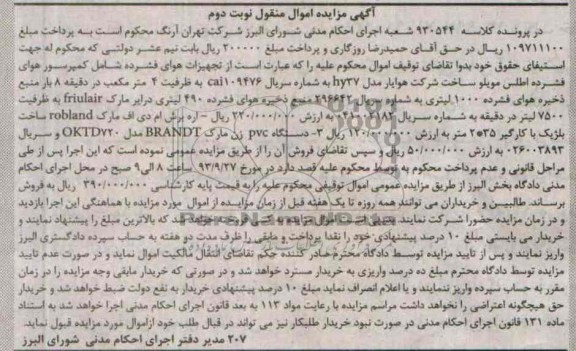 آگهی مزایده اموال منقول نوبت دوم
در پرونده کلاسه ۹۳۰۵۴۴ شعبه اجرای احکام مدنی شورای البرز شرکت تهران آرنگ محکوم است به پرداخت مبلغ
۱۰۹۷۱۱۱۰۰ ریال در حق آقای حمیدرضا روزگاری و پرداخت مبلغ ۲۰۰۰۰۰۰ ریال بابت نیم عشر دولتی که محکوم له جهت
استیفای حقوق خود بدوا تقاضای توقیف اموال محکوم علیه را که عبارت است از تجهیزات هوای فشرده شامل کمپرسور هوای
فشرده اطلس مویلو ساخت شرکت هوایار مدل hy۳۷ به شماره سریال cai۱۰۹۴۷۶ به ظرفیت ۴ متر مکعب در دقیقه ۸ بار منبع
ذخیره هوای فشرده ۱۰۰۰ لیتری به شماره سریال منبع ذخیره هوای فشرده ۴۹۰ لیتری درایر مارک friulair به ظرفیت
۷۵۰۰ لیتر در دقیقه به شماره سریال به ارزش ۲۳۰/۰۰۰/۰۰۰ ریال - اره برش ام دی اف مارک robland ساخت
بلژیک با کارگیر ۳*۲۵ متر به ارزش ۱۲۰/۰۰۰/۰۰۰ ریال ۳- دستگاه pvc زن مارک BRANDT مدل OKTD۷۲۰ و سریال
۰۲۶۰۰۳۸۹۳ به ارزش ۵۰/۰۰۰/۰۰۰ ریال و سپس تقاضای فروش آن را از طریق مزایده عمومی نموده است که این اجرا پس از طی
مراحل قانونی و عدم پرداخت محکوم به توسط محکوم علیه قصد دارد در مورخ ۹۳/۹/۲۷ ساعت ۸ الی ۹ صبح در محل اجرای احکام
مدنی دادگاه بخش البرز از طریق مزایده عمومی اموال توقیفی محکوم علیه را به قیمت پایه کارشناسی ۳۹۰/۰۰۰/۰۰۰ ریال به فروش
برساند. طالبین و خریداران می توانند همه روزه تا یک هفته قبل از زمان مزایده از اموال مورد مزایده با هماهنگی این اجرا بازدید
و در زمان مزایده حضورا شرکت نمایند. بدیهی است اموال مورد مزایده به کسی فروخته خواهد شد که بالاترین مبلغ را پیشنهاد نمایند و
خریدار می بایستی مبلغ ۱۰ درصد پیشنهادی خود را نقدا پرداخت و مابقی را ظرف مدت دو هفته به حساب سپرده دادگستری البرز
واریز نمایند و پس از تایید مزایده توسط دادگاه محترم صادر کننده حکم تقاضای انتقال مالکیت اموال نماید و در صورت عدم تایید
مزایده توسط دادگاه محترم مبلغ ده درصد واریزی به خریدار مسترد خواهد شد و در صورتی که خریدار مابقی وجه مزایده را در زمان
مقرر به حساب سپرده واریز ننمایند و یا اعلام انصراف نماید مبلغ ۱۰ درصد پیشنهادی خریدار به نفع دولت ضبط خواهد شد و خریدار
حق هیچگونه اعتراضی را نخواهد داشت مراسم مزایده با رعایت مواد ۱۱۳ به بعد قانون اجرای احکام مدنی اجرا خواهد شد به استناد
ماده ۱۳۱ قانون اجرای احکام مدنی در صورت نبود خریدار طلبکار نیز می تواند در قبال طلب خود ازاموال مورد مزایده قبول نماید.
۲۰۷ مدیر دفتر اجرای احکام مدنی شورای البرز